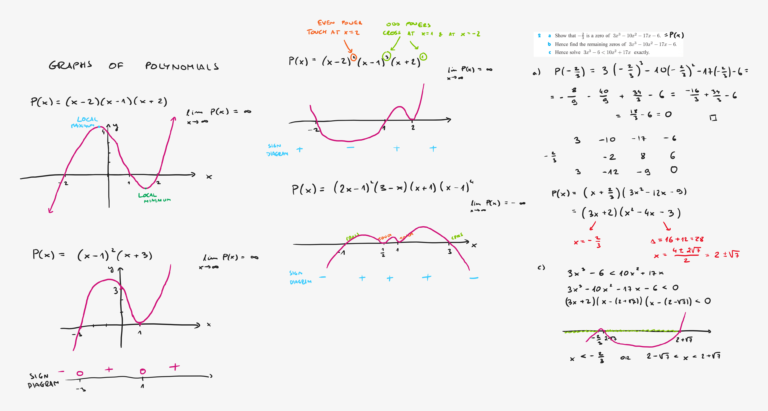 GRAPHS OF POLYNOMIALS
P(x) = (x-2)(x-1)(x+2)
lim P(x) = ∞
x→∞
LOCAL
MAXIMUM
y
-2
1
2
x
LOCAL
MINIMUM
P(x) = (x-1)²(x+3)
lim P(x) = ∞
x→∞
y
3
-3
1
x
SIGN
DIAGRAM
- 0 + 0 +
-3 1
EVEN POWER
TOUCH AT x=2
ODD POWERS
CROSS AT x=1 & AT x=-2
lim P(x) = ∞
x→∞
-2 1 2
SIGN
DIAGRAM
+ - + +
lim P(x) = -∞
x→∞
-1
1
3
x
SIGN
DIAGRAM
- + + + -
a Show that -2/3 is a zero of 3x³ - 10x² - 17x - 6. = P(x)
b Hence find the remaining zeros of 3x³ - 10x² - 17x - 6.
c Hence solve 3x³ - 6 < 10x² + 17x exactly.
a) P(-2/3) = 3(-2/3)³ - 10(-2/3)² - 17(-2/3) - 6 =
3 -10 -17 -6
-2/3 -2 8 6
3 -12 -9 0
P(x) = (x + 2/3)(3x² - 12x - 9)
= (3x+2)(x² - 4x - 3)
x = -2/3
Δ = 16+12 = 28
x = (4 ± 2√7)/2 = 2 ± √7
c)
3x³ - 6 < 10x² + 17x
3x³ - 10x² - 17x - 6 < 0
(3x+2)(x - (2+√7))(x - (2-√7)) < 0
-2/3 2-√7 2+√7
x < -2/3 or 2-√7 < x < 2+√7